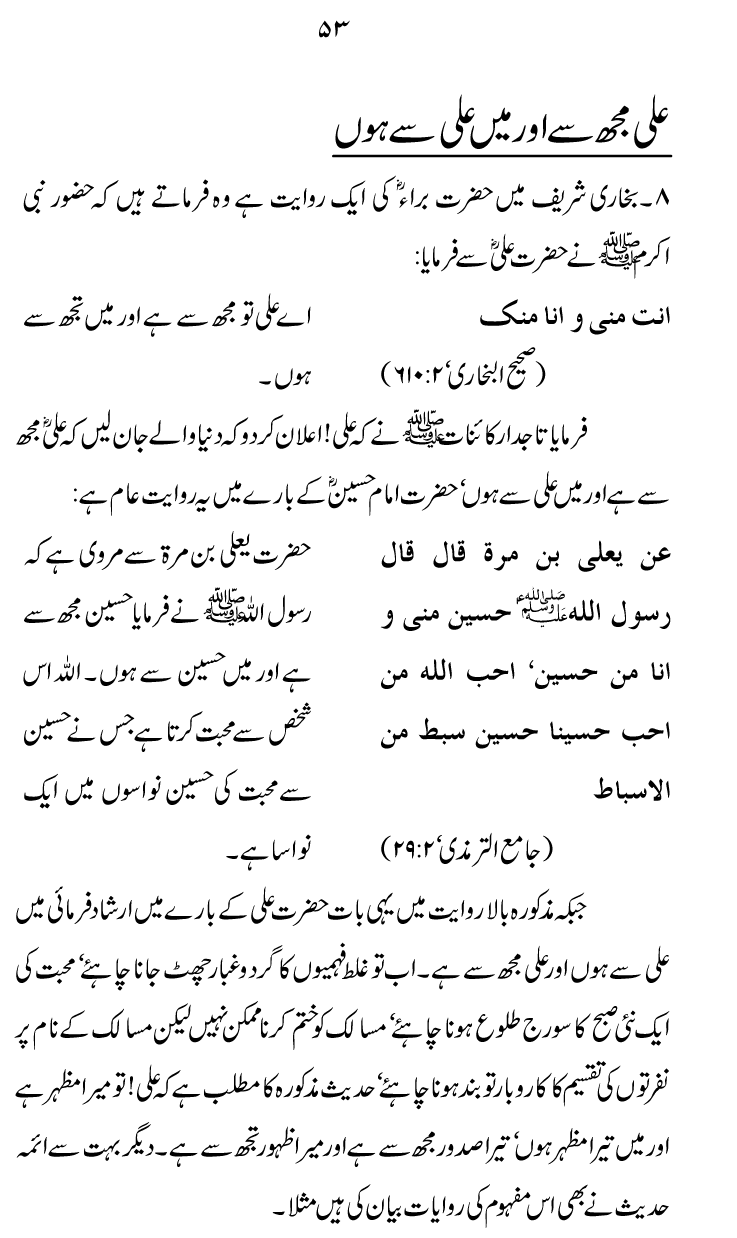 ۵۳
علی مجھ سے اور میں علی سے ہوں
۸۔ بخاری شریف میں حضرت براءؓ کی ایک روایت ہے وہ فرماتے ہیں کہ حضور نبی
اکرم ﷺ نے حضرت علیؓ سے فرمایا:
انت منی و انا منک
اے علی تو مجھ سے ہے اور میں تجھ سے
(صحیح البخاری، ۲:۶۱۰)
ہوں۔
فرمایا تاجدار کائنات ﷺ نے کہ علی! اعلان کر دو کہ دنیا والے جان لیں کہ علیؓ مجھ
سے ہے اور میں علی سے ہوں، حضرت امام حسینؓ کے بارے میں یہ روایت عام ہے:
عن یعلی بن مرة قال قال
حضرت یعلی بن مرۃ سے مروی ہے کہ
رسول الله ﷺ حسین منی و
رسول اللہ ﷺ نے فرمایا حسین مجھ سے
انا من حسین، احب الله من
ہے اور میں حسین سے ہوں۔ اللہ اس
احب حسینا حسین سبط من
شخص سے محبت کرتا ہے جس نے حسین
الاسباط
سے محبت کی حسین نواسوں میں ایک
(جامع الترمذی، ۲:۲۹)
نواسا ہے۔
جبکہ مذکورہ بالا روایت میں یہی بات حضرت علی کے بارے میں ارشاد فرمائی میں
علی سے ہوں اور علی مجھ سے ہے۔ اب تو غلط فہمیوں کا گرد و غبار چھٹ جانا چاہئے، محبت کی
ایک نئی صبح کا سورج طلوع ہونا چاہئے، مسالک کو ختم کرنا ممکن نہیں لیکن مسالک کے نام پر
نفرتوں کی تقسیم کا کاروبار تو بند ہونا چاہئے، حدیث مذکورہ کا مطلب ہے کہ علی! تو میرا مظہر ہے
اور میں تیرا مظہر ہوں، تیرا صدور مجھ سے ہے اور میرا ظہور تجھ سے ہے۔ دیگر بہت سے ائمہ
حدیث نے بھی اس مفہوم کی روایات بیان کی ہیں مثلا۔